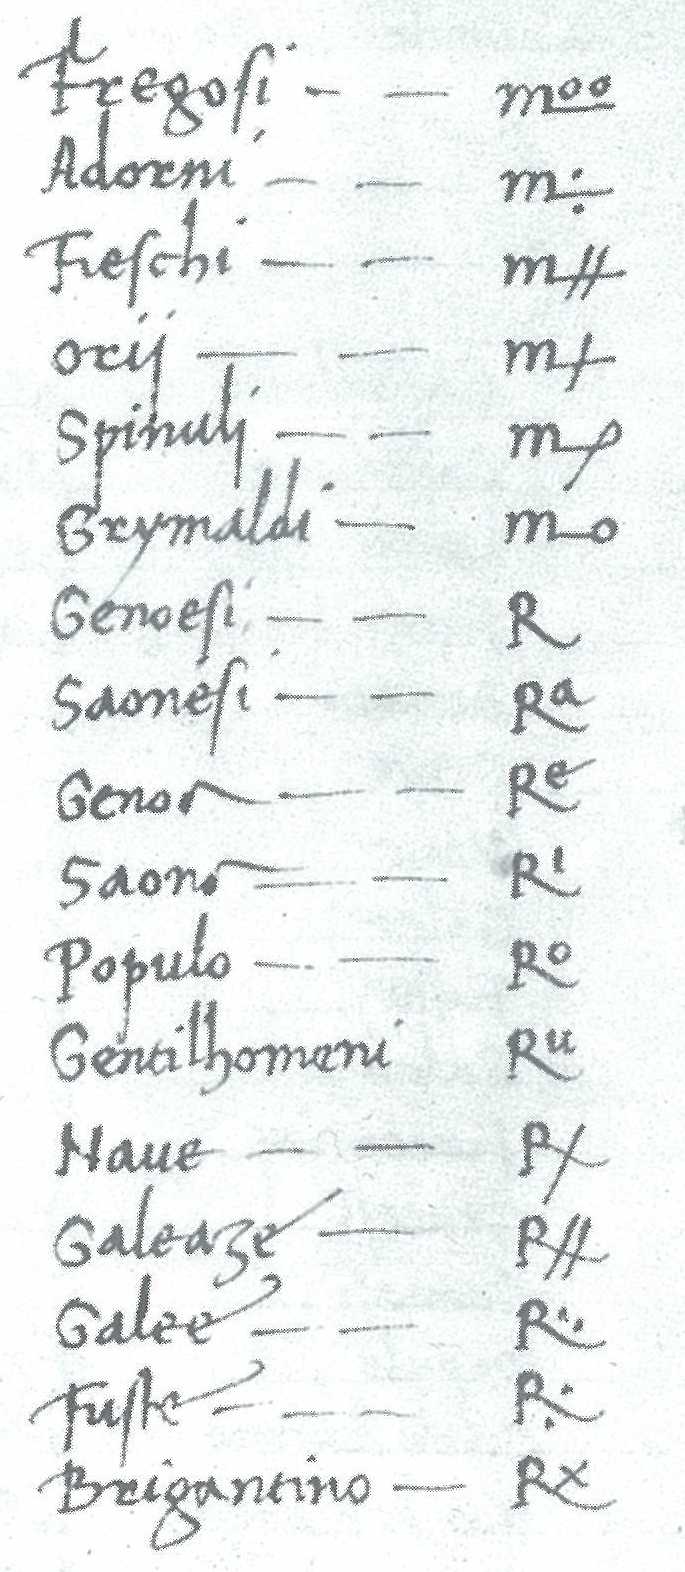 Fregosi - - m°°
Adorni - - m
Freschi - - m
orij - - m
Spinulj - - m
Grymaldi - m-o
Genoesi - - R
Saonesi - - Ra
Genoa - - Re
Saona - - Ri
Populo - - Ro
Gentilhomeni Ru
Naue - - R
Galeaze - R
Galee - - R
Fuste - - - R
Brigantino - Rx